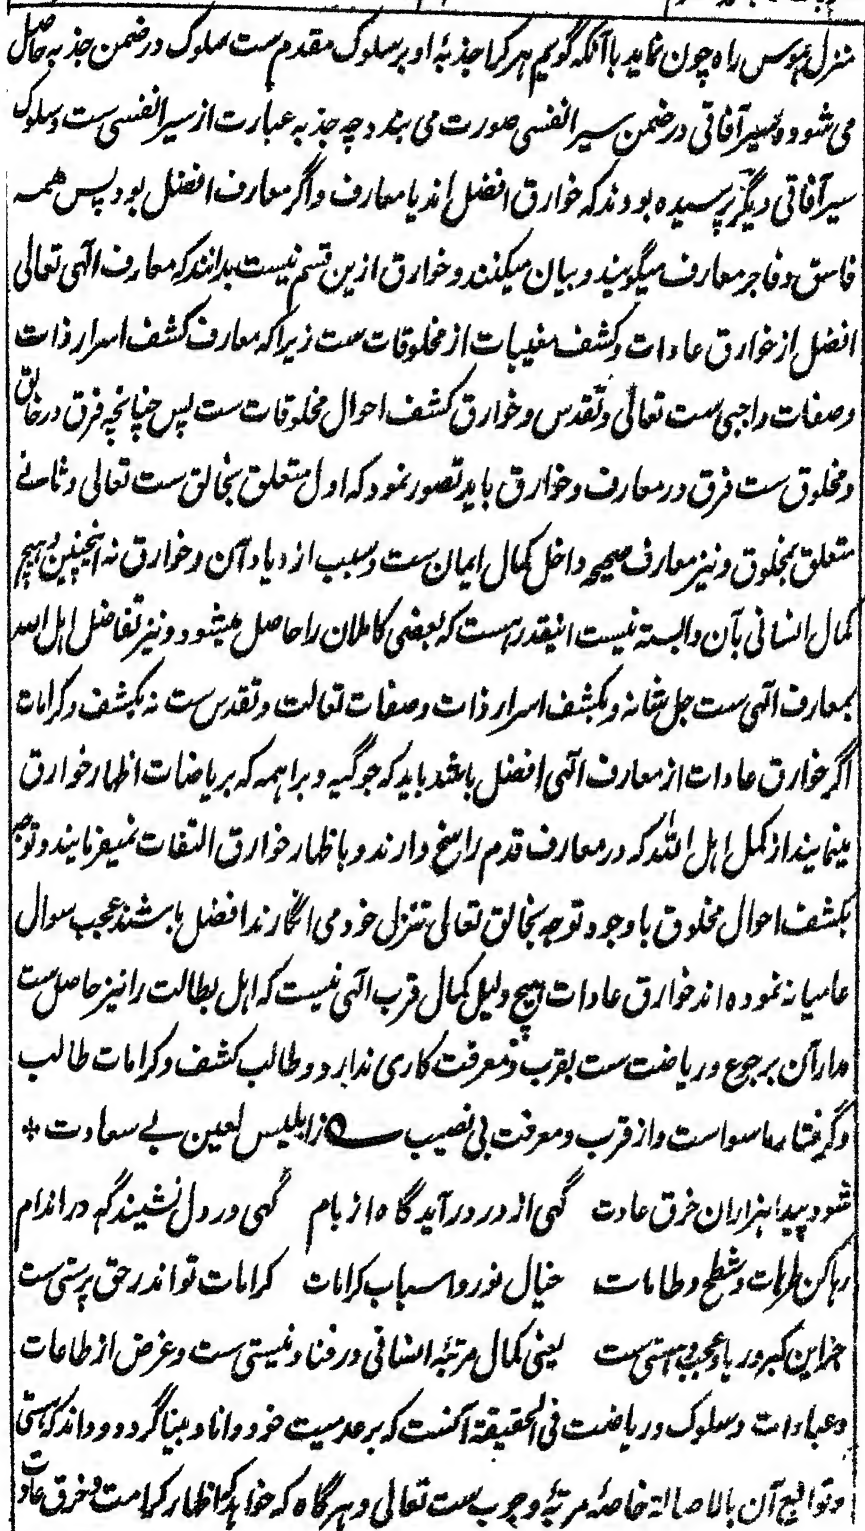 منزل بهوس راه چون نماید با آنکه گوییم هر کرا جذبهٔ او بر سلوک مقدم ست سلوک در ضمن جذبه حاصل
می شود و سیر آفاقی در ضمن سیر انفسی صورت می بندد چه جذبه عبارت از سیر انفسی ست و سلوک
سیر آفاقی دیگر پرسیده بودند که خوارق افضل اند یا معارف و اگر معارف افضل بود پس همه
فاسق و فاجر معارف میگویند و بیان میکنند و خوارق ازین قسم نیست بدانند که معارف الٓهی تعالی
افضل از خوارق عادات و کشف مغیبات از مخلوقات ست زیرا که معارف کشف اسرار ذات
و صفات واجبی ست تعالی و تقدس و خوارق کشف احوال مخلوقات ست پس چنانچه فرق در خالق
و مخلوق ست فرق در معارف و خوارق باید تصور نمود که اول متعلق بخالق ست تعالی و ثانے
متعلق بمخلوق و نیز معارف صحیحه داخل کمال ایمان ست و سبب ازدیاد آن و خوارق نه اینچنین و هیچ
کمال انسانی بآن وابسته نیست اینقدر هست که بعضی کاملان را حاصل میشود و نیز تفاضل اہل اللہ
بمعارف الٓهی ست جل شانه و بکشف اسرار ذات و صفات تعالت و تقدس ست نه بکشف و کرامات
اگر خوارق عادات از معارف الٓهی افضل باشد باید که جوگیه و براهمه که بریاضات اظهار خوارق
مینمایند از کمل اہل اللّٰہ که در معارف قدم راسخ دارند و باظهار خوارق التفات نمیفرمایند و توجه
بکشف احوال مخلوق با وجود توجه بخالق تعالی تنزل خود می انگارند افضل باشند عجب سوال
عامیانه نموده اند خوارق عادات هیچ دلیل کمال قرب الٓهی نیست که اہل بطالت را نیز حاصل ست
مدار آن بر جوع و ریاضت ست بقرب و معرفت کاری ندارد و طالب کشف و کرامات طالب
و گرفتار ماسواست و از قرب و معرفت بی نصیب ؎ ز ابلیس لعین بے سعادت *
شود پیدا هزاران خرق عادت گهی از در درآید گاه از بام گهی در دل نشیند گه در اندام
رها کن طرهات و شطح و طامات خیال نور و اسباب کرامات کرامات تو اندر حق پرستی ست
جز این کبر و ریا و عجب و هستی ست یعنی کمال مرتبهٔ انسانی در فنا و نیستی ست و غرض از طاعات
و عبادات و سلوک و ریاضت فی الحقیقة آنست که بر عدمیت خود دانا و بینا گردد و داند که هستی
و توابع آن بالاصالة خاصهٔ مرتبهٔ وجوب ست تعالی و هرگاه که خواهد که اظهار کرامت و خرق عادت